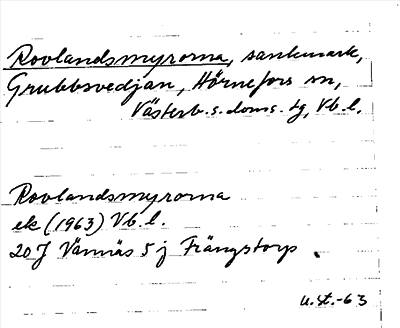 Rovlandsmyrorna, sankmark,
Grubbsvedjan, Hörnefors sn,
Västerb. s. doms. tg, Vb. l.
Rovlandsmyrorna
ek (1963) Vb. l.
20J Vännäs 5 j Frängstorp.
u.st.-63